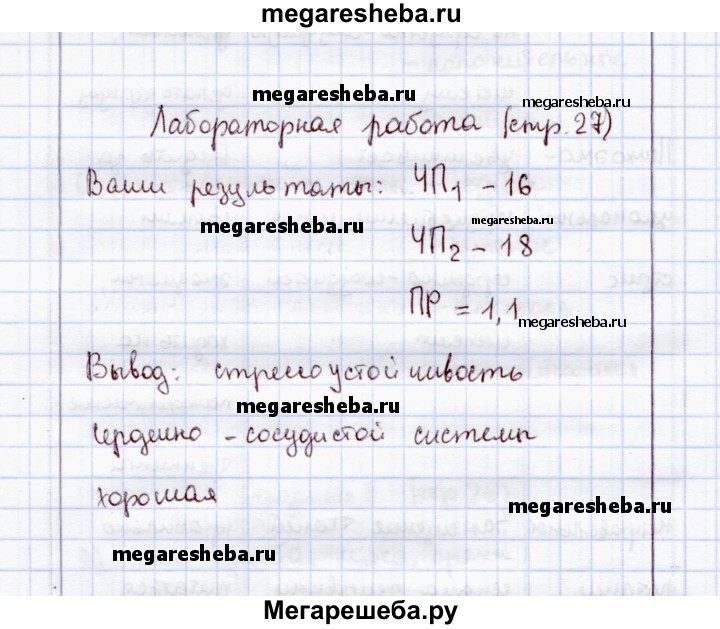 megaresheba.ru
megaresheba.ru
megaresheba.ru
Лабораторная работа (стр. 27)
Ваши результаты: ЧП1 - 16
megaresheba.ru
megaresheba.ru
ЧП2 - 18
ПР = 1,1
megaresheba.ru
Вывод: стрессоустойчивость
megaresheba.ru
сердечно - сосудистой системы
хорошая
megaresheba.ru
megaresheba.ru
Мегарешеба.ру